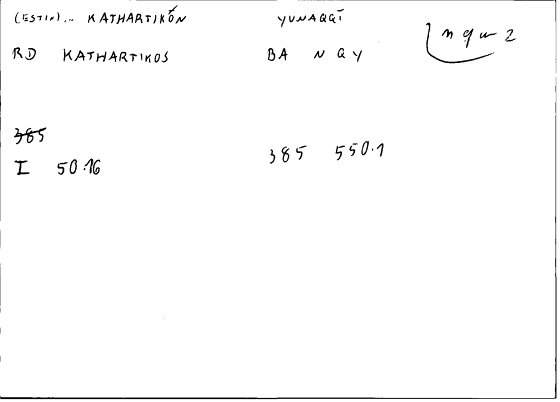 (ESTIN)... KATHARTIKÓN YUNAQQĪ
RD KATHARTIKOS BA N Q Y
n q w 2
385
I 50.16 385 550.1